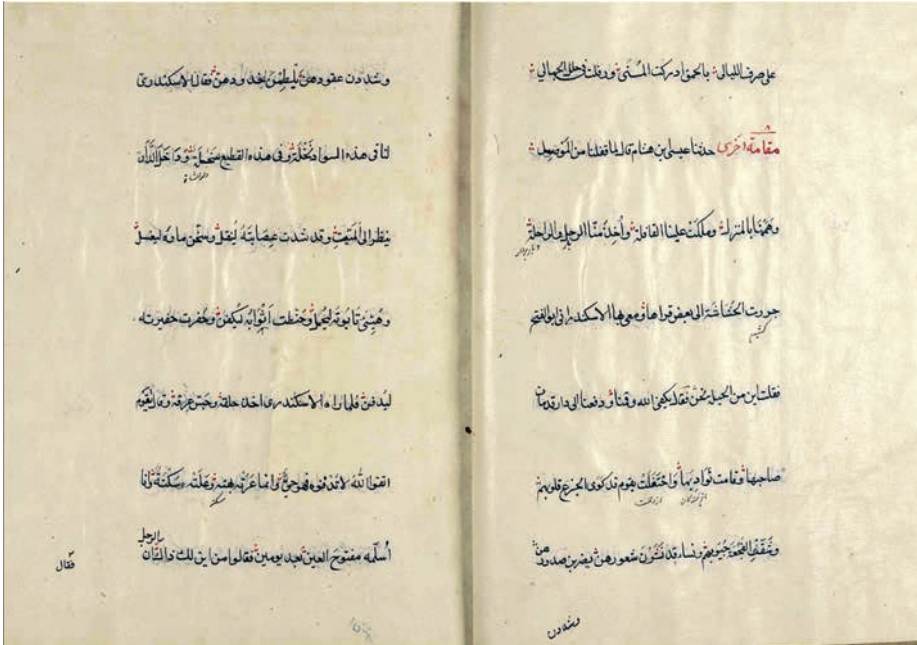 على صرف الليالي بالحمق ادركت المنى ورفلت في حلل الجمال
٨
مقامة اخرى حدثنا عيسى ابن هشام قال لما قفلنا من الموصل
وهممنا بالمنزلة وملكت علينا القافلة واخذ منا الرحل والراحلة
جرت الحشاشة الى بعض قراها ومعي بها الاسكندراني ابو الفتح
كشيد
فقلت اين من الحيل نحن فقال يكفي الله وقنا ودفعنا الى دار قد مات
صاحبها وقامت نوادبها واحتفلت بقوم قد كوى الجزع قلوبهم
وشققت الفجيعة جيوبهم ونساء قد نشرن شعورهن يضربن صدورهن
وشددن
وشددن عقودهن يلطمن خدودهن فقال الاسكندري
لنا في هذه السواد نخلة وفي هذه القطيع سخلة ودخل الدار
ينظر الى الميت وقد شدت عصابته لينقل وسخن ماءه ليغسل
وهيئ تابوته ليحمل وخيطت اثوابه ليكفن وحفرت حفيرته
ليدفن فلما راه الاسكندري اخذ حلقه وجس عرقه وقال يا قوم
اتقوا الله لا تدفنوه فهو حي وانما عرته بهته وعلته سكتة وانا
سكته
اسلمه مفتوح العين بعد يومين فقالوا من اين لك ذالك
فقال